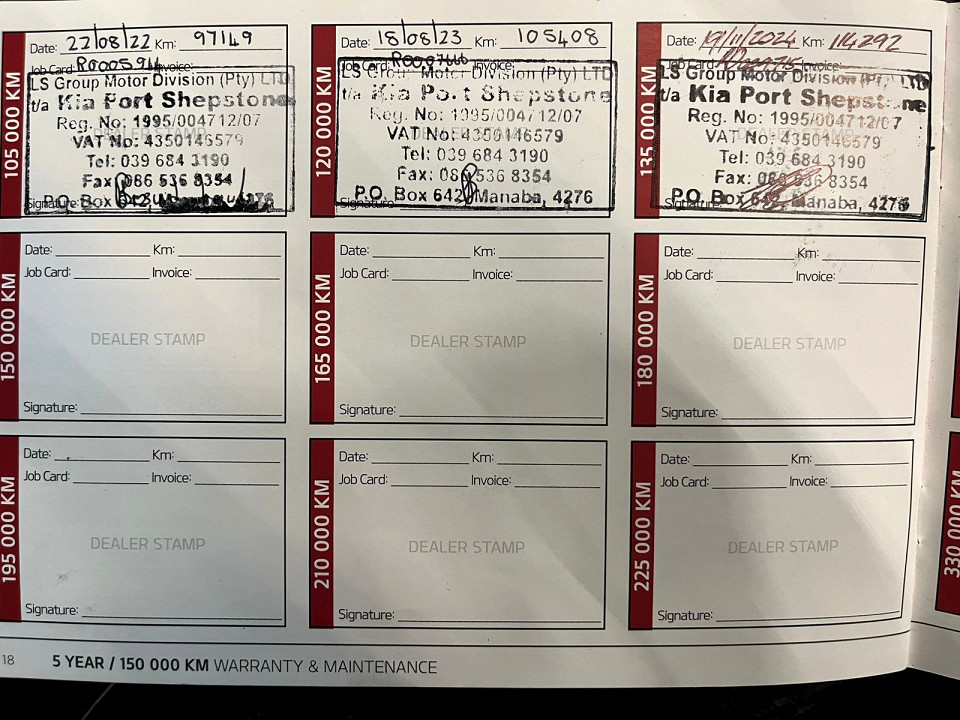 105 000 KM
Date: 22/08/22 Km: 97149
Job Card: R0005911 Invoice:
LS Group Motor Division (Pty) LTD
t/a Kia Port Shepstone
Reg. No: 1995/004712/07
VAT No: 4350146579
Tel: 039 684 3190
Fax 086 536 8354
P.O. Box
4276
Signature:
120 000 KM
Date: 18/08/23 Km: 105408
Job Card: Invoice:
LS Group Motor Division (Pty) LTD
t/a Kia Port Shepstone
Reg. No: 1995/004712/07
VAT No: 4350146579
Tel: 039 684 3190
Fax: 086 536 8354
P.O. Box 642, Manaba, 4276
Signature:
135 000 KM
Date: 19/11/2024 Km: 114292
Job Card: Invoice:
LS Group Motor Division (Pty) LTD
t/a Kia Port Shepstone
Reg. No: 1995/004712/07
VAT No: 4350146579
Tel: 039 684 3190
Fax: 086 536 8354
P.O. Box 642, Manaba, 4276
Signature:
150 000 KM
Date: Km:
Job Card: Invoice:
DEALER STAMP
Signature:
165 000 KM
Date: Km:
Job Card: Invoice:
DEALER STAMP
Signature:
180 000 KM
Date: Km:
Job Card: Invoice:
DEALER STAMP
Signature:
195 000 KM
Date: Km:
Job Card: Invoice:
DEALER STAMP
Signature:
210 000 KM
Date: Km:
Job Card: Invoice:
DEALER STAMP
Signature:
225 000 KM
Date: Km:
Job Card: Invoice:
DEALER STAMP
Signature:
330 000 KM
18 5 YEAR / 150 000 KM WARRANTY & MAINTENANCE